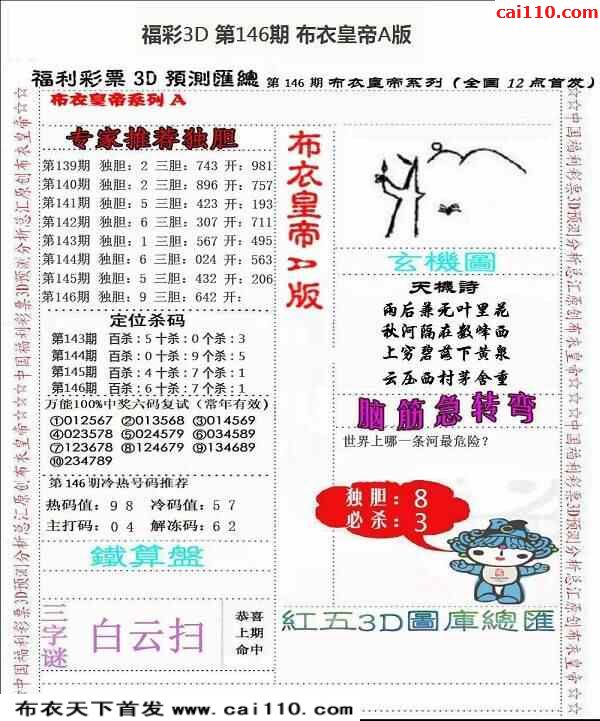 cai110.com
福彩3D 第146期 布衣皇帝A版
福利彩票 3D 預測匯總 第 146 期 布衣皇帝系列 (全国 12 点首发)
布衣皇帝系列 A
专家推荐独胆
第139期 独胆：2 三胆：743 开：981
第140期 独胆：2 三胆：896 开：757
第141期 独胆：5 三胆：423 开：193
第142期 独胆：6 三胆：307 开：711
第143期 独胆：1 三胆：567 开：495
第144期 独胆：6 三胆：024 开：563
第145期 独胆：5 三胆：432 开：206
第146期 独胆：9 三胆：642 开：
定位杀码
第143期 百杀：5 十杀：0 个杀：3
第144期 百杀：0 十杀：9 个杀：5
第145期 百杀：4 十杀：7 个杀：1
第146期 百杀：6 十杀：7 个杀：1
万能100%中奖六码复试（常年有效）
①012567 ②013568 ③014569
④023578 ⑤024579 ⑥034589
⑦123678 ⑧124679 ⑨134689
⑩234789
第146期冷热号码推荐
热码值：9 8 冷码值：5 7
主打码：0 4 解冻码：6 2
鐵算盤
三字谜
白云扫
恭喜
上期
命中
布衣皇帝A版
玄機圖
天機詩
雨后兼无叶里花
秋河隔在数峰西
上穷碧落下黄泉
云压西村茅舍重
脑筋急转弯
世界上哪一条河最危险?
独胆：8
必杀：3
紅五3D圖庫總匯
☆☆中国福利彩票3D预测分析总汇原创布衣皇帝☆☆
☆☆中国福利彩票3D预测分析总汇原创布衣皇帝☆☆
布衣天下首发 www.cai110.com